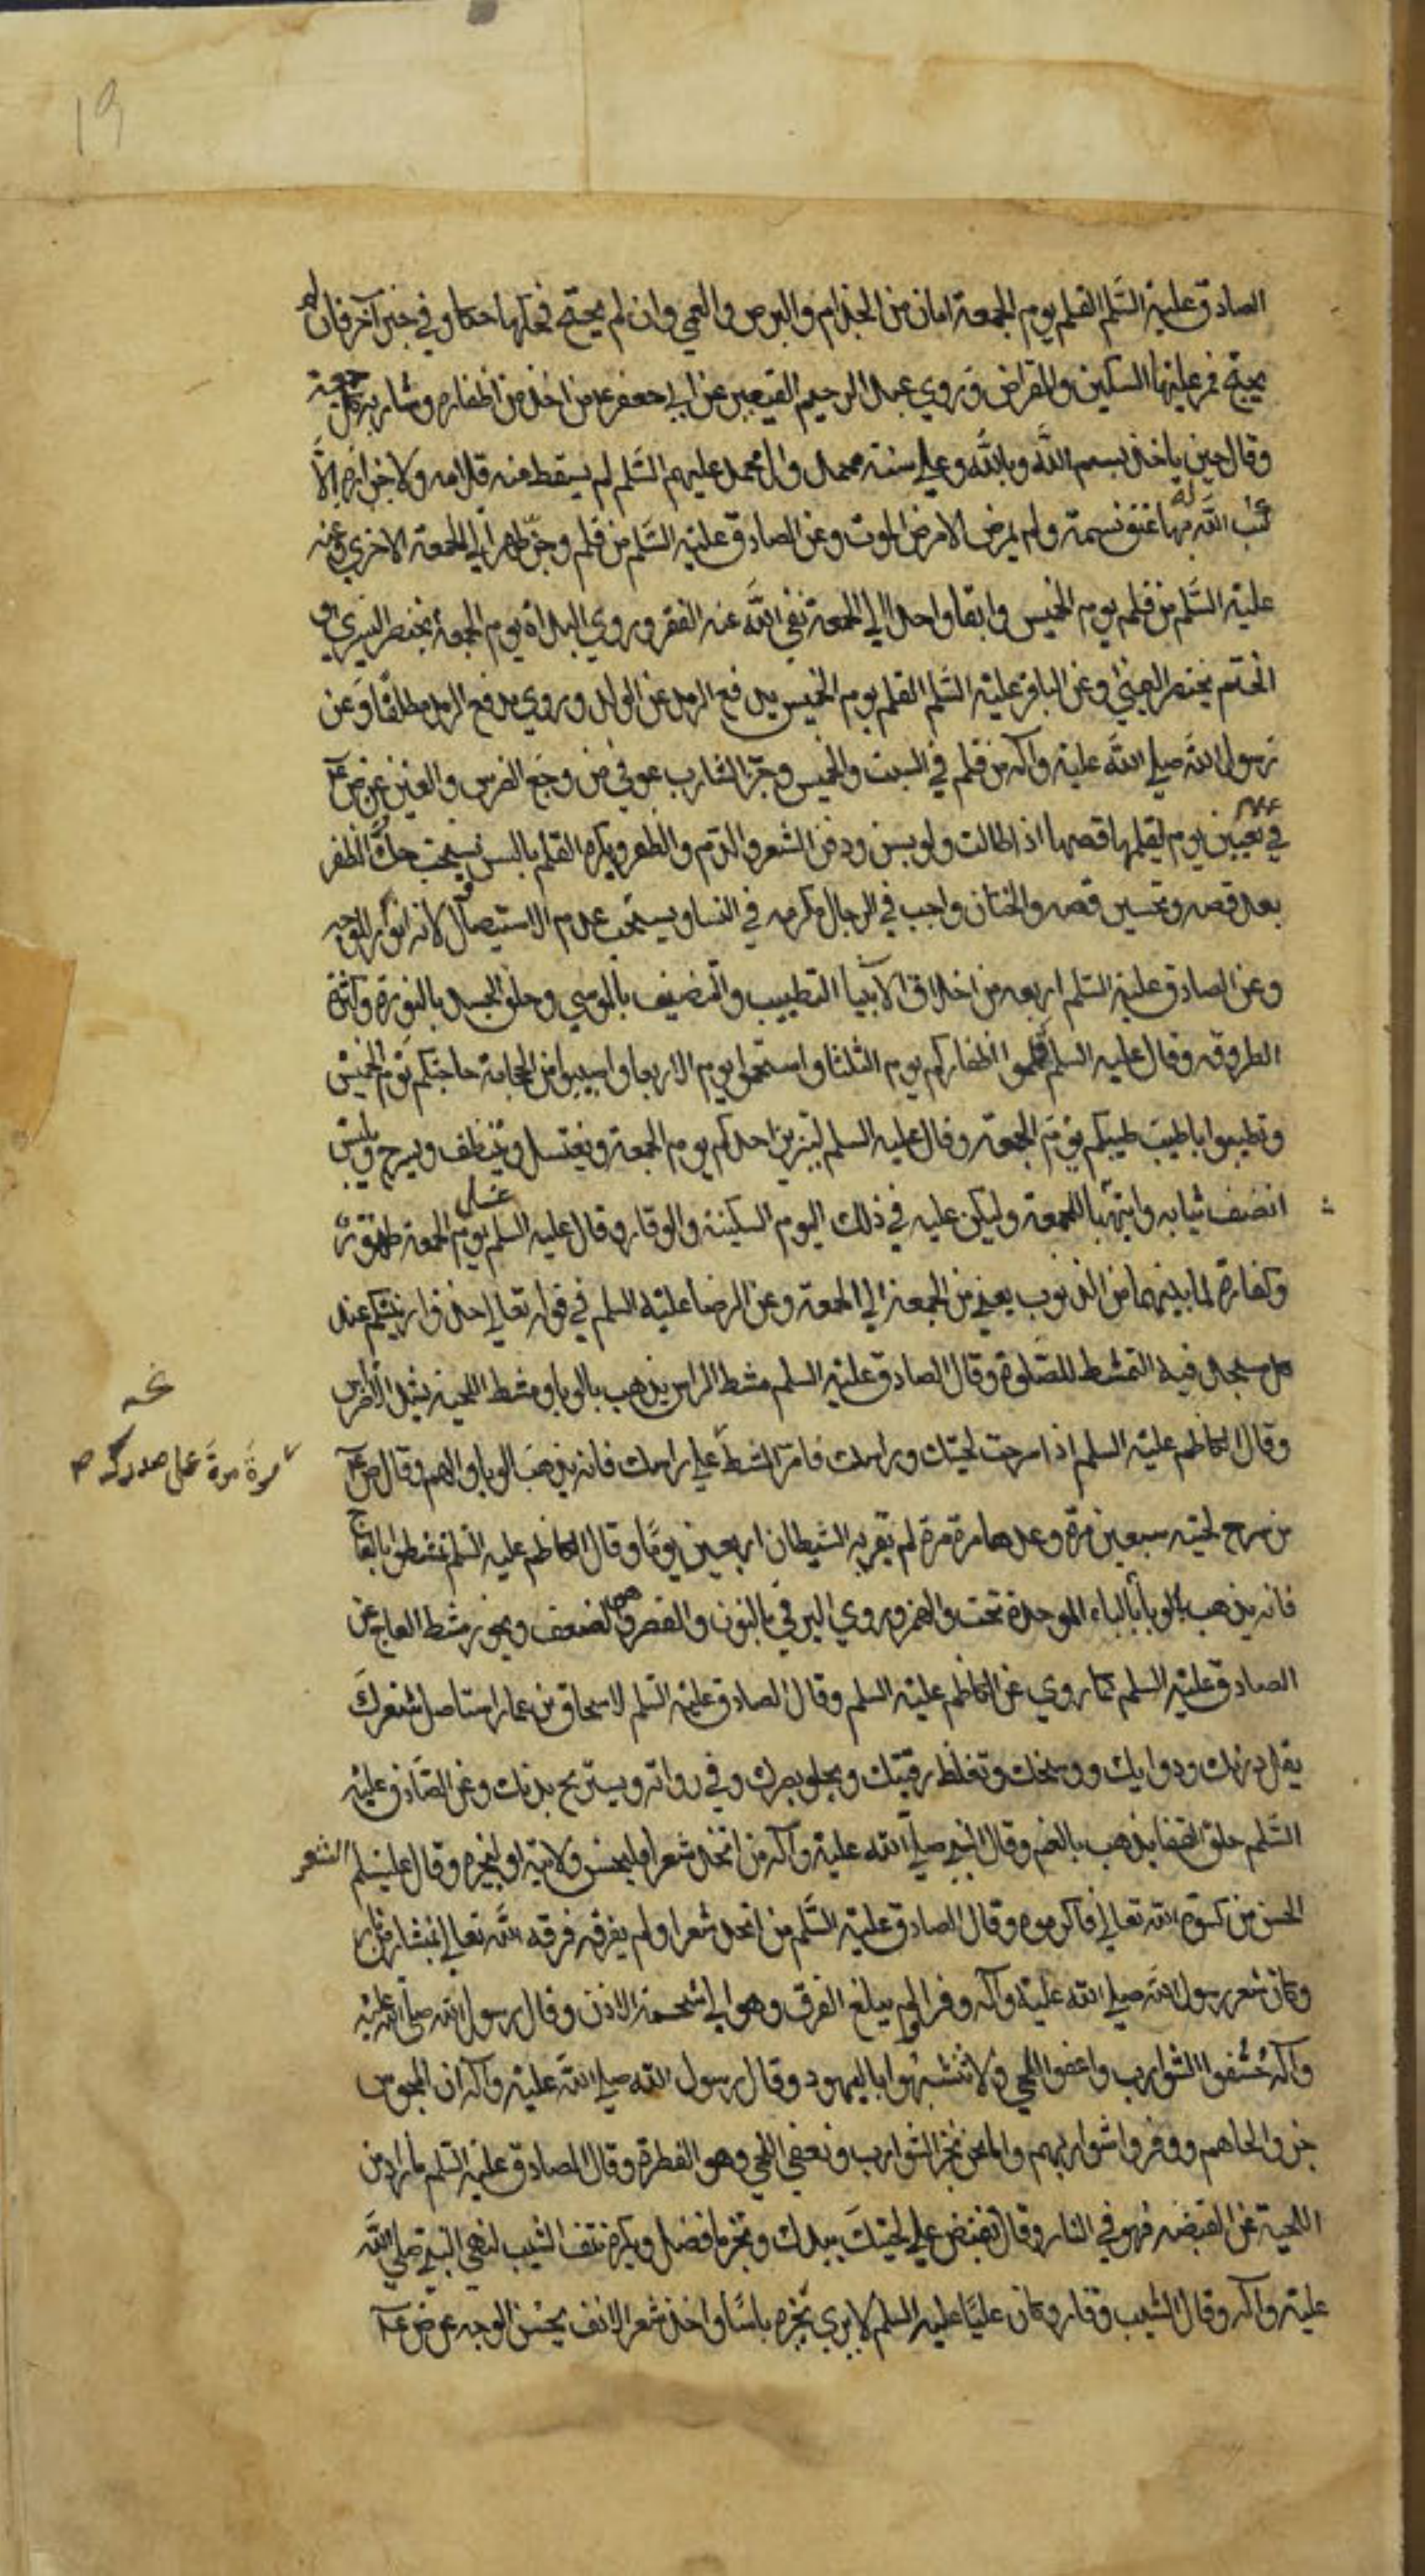 19
الصادق عليه السَّلم القلم يوم الجمعة امان من الجذام والبرص والعمي وان لم يحتج فحكها حكا وفي خبر آخر فان لم
يحتج فمر عليها السكين والمقراض وروي عبد الرحيم القصير عن ابي جعفر ع من اخذ من اظفاره وشاربه كل جمعة
وقال حين ياخذ بسم اللَّه وباللَّه وعلي سنة محمد وال محمد عليهم السَّلم لم يسقط منه قلامه ولا جزازة الَّا
كتب اللَّه له بها عتق نسمة ولم يمرض الا مرض الموت وعن الصادق عليه السَّلم من قلم وجزّ طهرا الي الجمعة الاخري وعنه
عليه السَّلم من قلم يوم الخميس وابقا واحدا الي الجمعة نفي اللَّه عنه الفقر وروي البداة يوم الجمعة بخنصر اليسري و
الختم بخنصر اليمني وعن الباقر عليه السَّلم القلم يوم الخميس يدفع الرمد عن الولد وروي يدفع الرمد مطلقًا وعن
رسول اللَّه صلي اللَّه عليه وآله من قلم في السبت والخميس وجز الشارب عوفي من وجع الضرس والعينين
في تعيين يوم لقلمها قصها اذا طالت ولو بسن ودفن الشعر والدم والظفر ويكره القلم بالسن يستحب حكّ الظفر
بعد قصه وتحسين قصه والختان واجب في الرجال مكرمه في النسا ويستحب عدم الاستيصال لانه انور للوجه
وعن الصادق عليه السَّلم اربعه من اخلاق الانبيا التطييب والتنضيف بالموسي وحلق الجسد بالنورة وكثرة
الطروقه وقال عليه السلم قلموا اظفاركم يوم الثلثا واستحموا يوم الاربعا واصيبوا من الحجامة حاجتكم يوم الخميس
وتطيبوا باطيب طيبكم يوم الجمعة وقال عليه السلم ليتزين احدكم يوم الجمعة ويغتسل ويتنظف ويسرح ويلبس
انضف ثيابه وليتهيا للجمعة وليكن عليه في ذلك اليوم السكينة والوقار وقال عليه السلم غسل يوم الجمعة طهورٌ
وكفارة لما بينهما من الذنوب يعني من الجمعة الي الجمعة وعن الرضا عليه السلم في قوله تعالي خذوا زينتكم عند
كل مسجد فيه التمشط للصَّلوة وقال الصادق عليه السلم مشط الراس يذهب بالوبا ومشط اللحية يشد الاضراس
وقال الكاظم عليه السلم اذا سرحت لحيتك وراسك فامر المشط علي صدرك فانه يذهب الوبا والهم وقال
من سرح لحيته سبعين مرة وعدها مرة مرة لم يقربه الشيطان اربعين يومًا وقال الكاظم عليه السلم تمشطوا بالعاج
فانه يذهب بالوبأ بالباء الموحدة تحت والهمز وروي البرقي بالنون والقصر وهو الضعف ويجوز مشط العاج عن
الصادق عليه السلم كما روي عن الكاظم عليه السلم وقال الصادق عليه السلم لاسحاق بن عمار استاصل شعرك
يقل درنك ودوابك ووسخك وتغلظ رقبتك ويجلو بصرك وفي رواته ويستريح بدنك وعن الصَّادق عليه
السَّلم حلق القفا يذهب بالغم وقال النبي صلّي اللَّه عليه وآله من اتخذ شعرا فليحسن ولايته او ليجزه وقال عليه السلم الشعر
الحسن من كسوة اللَّه تعالي فاكرموه وقال الصادق عليه السَّلم من اتخذ شعرا ولم يفرقه فرقه اللَّه تعالي بمنشار من نار
وكان شعر رسول اللَّه صلي اللَّه عليه وآله وفرا لم يبلغ الفرق وهو الي شحمة الاذن وقال رسول اللَّه صلي اللَّه عليه
وآله حُفُّوا الشوارب واعفوا اللحي ولا تتشبهوا باليهود وقال رسول اللَّه صلي اللَّه عليه وآله ان المجوس
جزوا لحاهم ووفروا شواربهم وانا نحن نجز الشوارب ونعفي اللحي وهو الفطرة وقال الصادق عليه السلم ما زاد من
اللحية عن القبضه فهو في النار وقال تقبض علي لحيتك بيدك وتجز ما فضل ويكره نتف الشيب لنهي النبي صلي اللَّه
عليه وآله وقال الشيب وقار وكان عليا عليه السلم لا يري بجزه باسًا واخذ شعر الانف يحسن الوجه
مرة مرة على صدرك